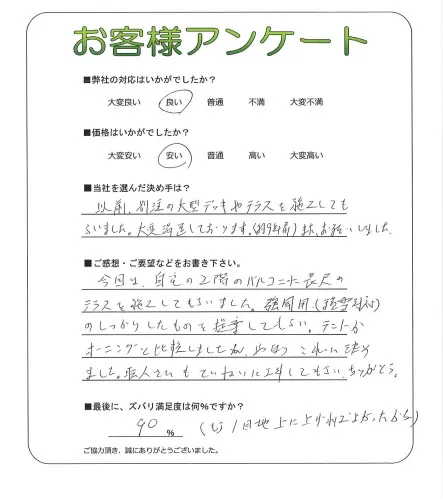 お客様アンケート
■弊社の対応はいかがでしたか?
大変良い 良い 普通 不満 大変不満
■価格はいかがでしたか?
大変安い 安い 普通 高い 大変高い
■当社を選んだ決め手は?
以前、別注の大型デッキやテラスを施工しても
らいました。大変満足しております。(約9年前)また、お願いしました。
■ご感想・ご要望などをお書き下さい。
今回は、自宅の2階のバルコニーに長尺の
テラスを施工してもらいました。強風用(積雪対応)
のしっかりしたものを提案してもらい。テントや
オーニングと比較しましたが、やはりこれに決め
ました。職人さんもていねいに工事してもらい、ありがとう。
■最後に、ズバリ満足度は何%ですか?
90 % (もう1回地上に上がれば
ご協力頂き、誠にありがとうございました。